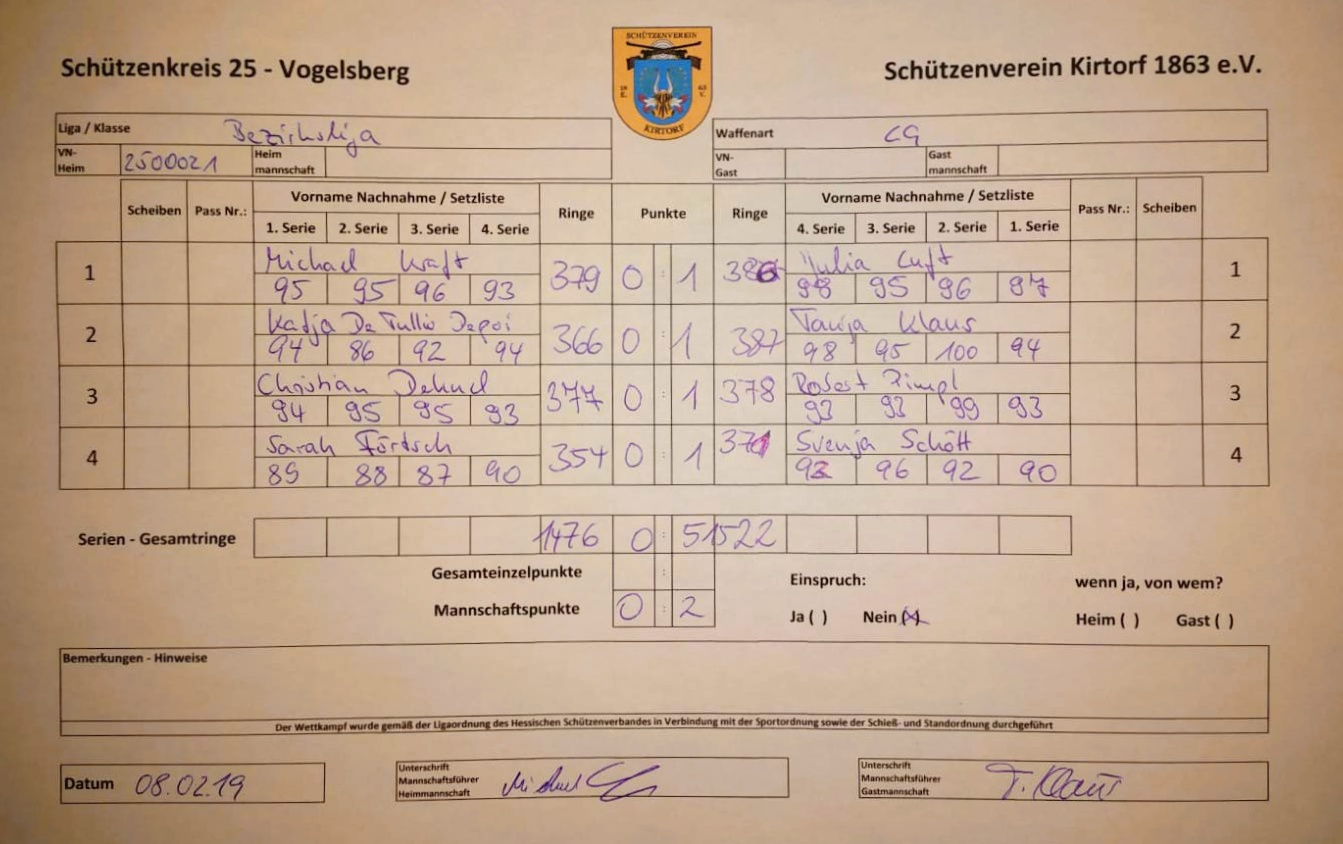 SCHÜTZENVEREIN
18 63
E. V.
KIRTORF
Schützenkreis 25 - Vogelsberg Schützenverein Kirtorf 1863 e.V.
Liga / Klasse Bezirksliga Waffenart LG
VN-Heim 2500021 Heimmannschaft VN-Gast Gastmannschaft
Scheiben Pass Nr.: Vorname Nachnahme / Setzliste Ringe Punkte Ringe Vorname Nachnahme / Setzliste Pass Nr.: Scheiben
1. Serie 2. Serie 3. Serie 4. Serie 4. Serie 3. Serie 2. Serie 1. Serie
1 Michael Kraft 379 0 : 1 386 Julia Luft 1
95 95 96 93 98 95 96 97
2 Katja De Tullio Depoi 366 0 : 1 387 Tanja Klaus 2
94 86 92 94 98 95 100 94
3 Christian Dehnel 377 0 : 1 378 Robert Pimpl 3
94 95 95 93 93 93 99 93
4 Sarah Förtsch 354 0 : 1 371 Svenja Schött 4
89 88 87 90 93 96 92 90
Serien - Gesamtringe 1476 0 : 5 1522
Gesamteinzelpunkte :
Mannschaftspunkte 0 : 2
Einspruch: wenn ja, von wem?
Ja ( ) Nein (X) Heim ( ) Gast ( )
Bemerkungen - Hinweise
Der Wettkampf wurde gemäß der Ligaordnung des Hessischen Schützenverbandes in Verbindung mit der Sportordnung sowie der Schieß- und Standordnung durchgeführt
Datum 08.02.19
Unterschrift
Mannschaftsführer
Heimmannschaft
Michael
Unterschrift
Mannschaftsführer
Gastmannschaft
T. Klaus